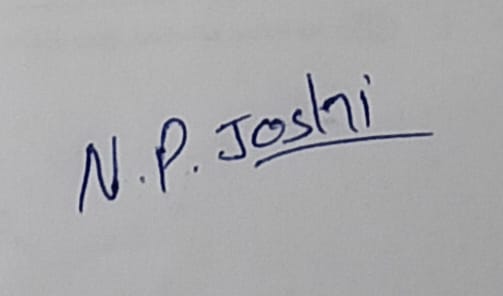 N.P. Joshi